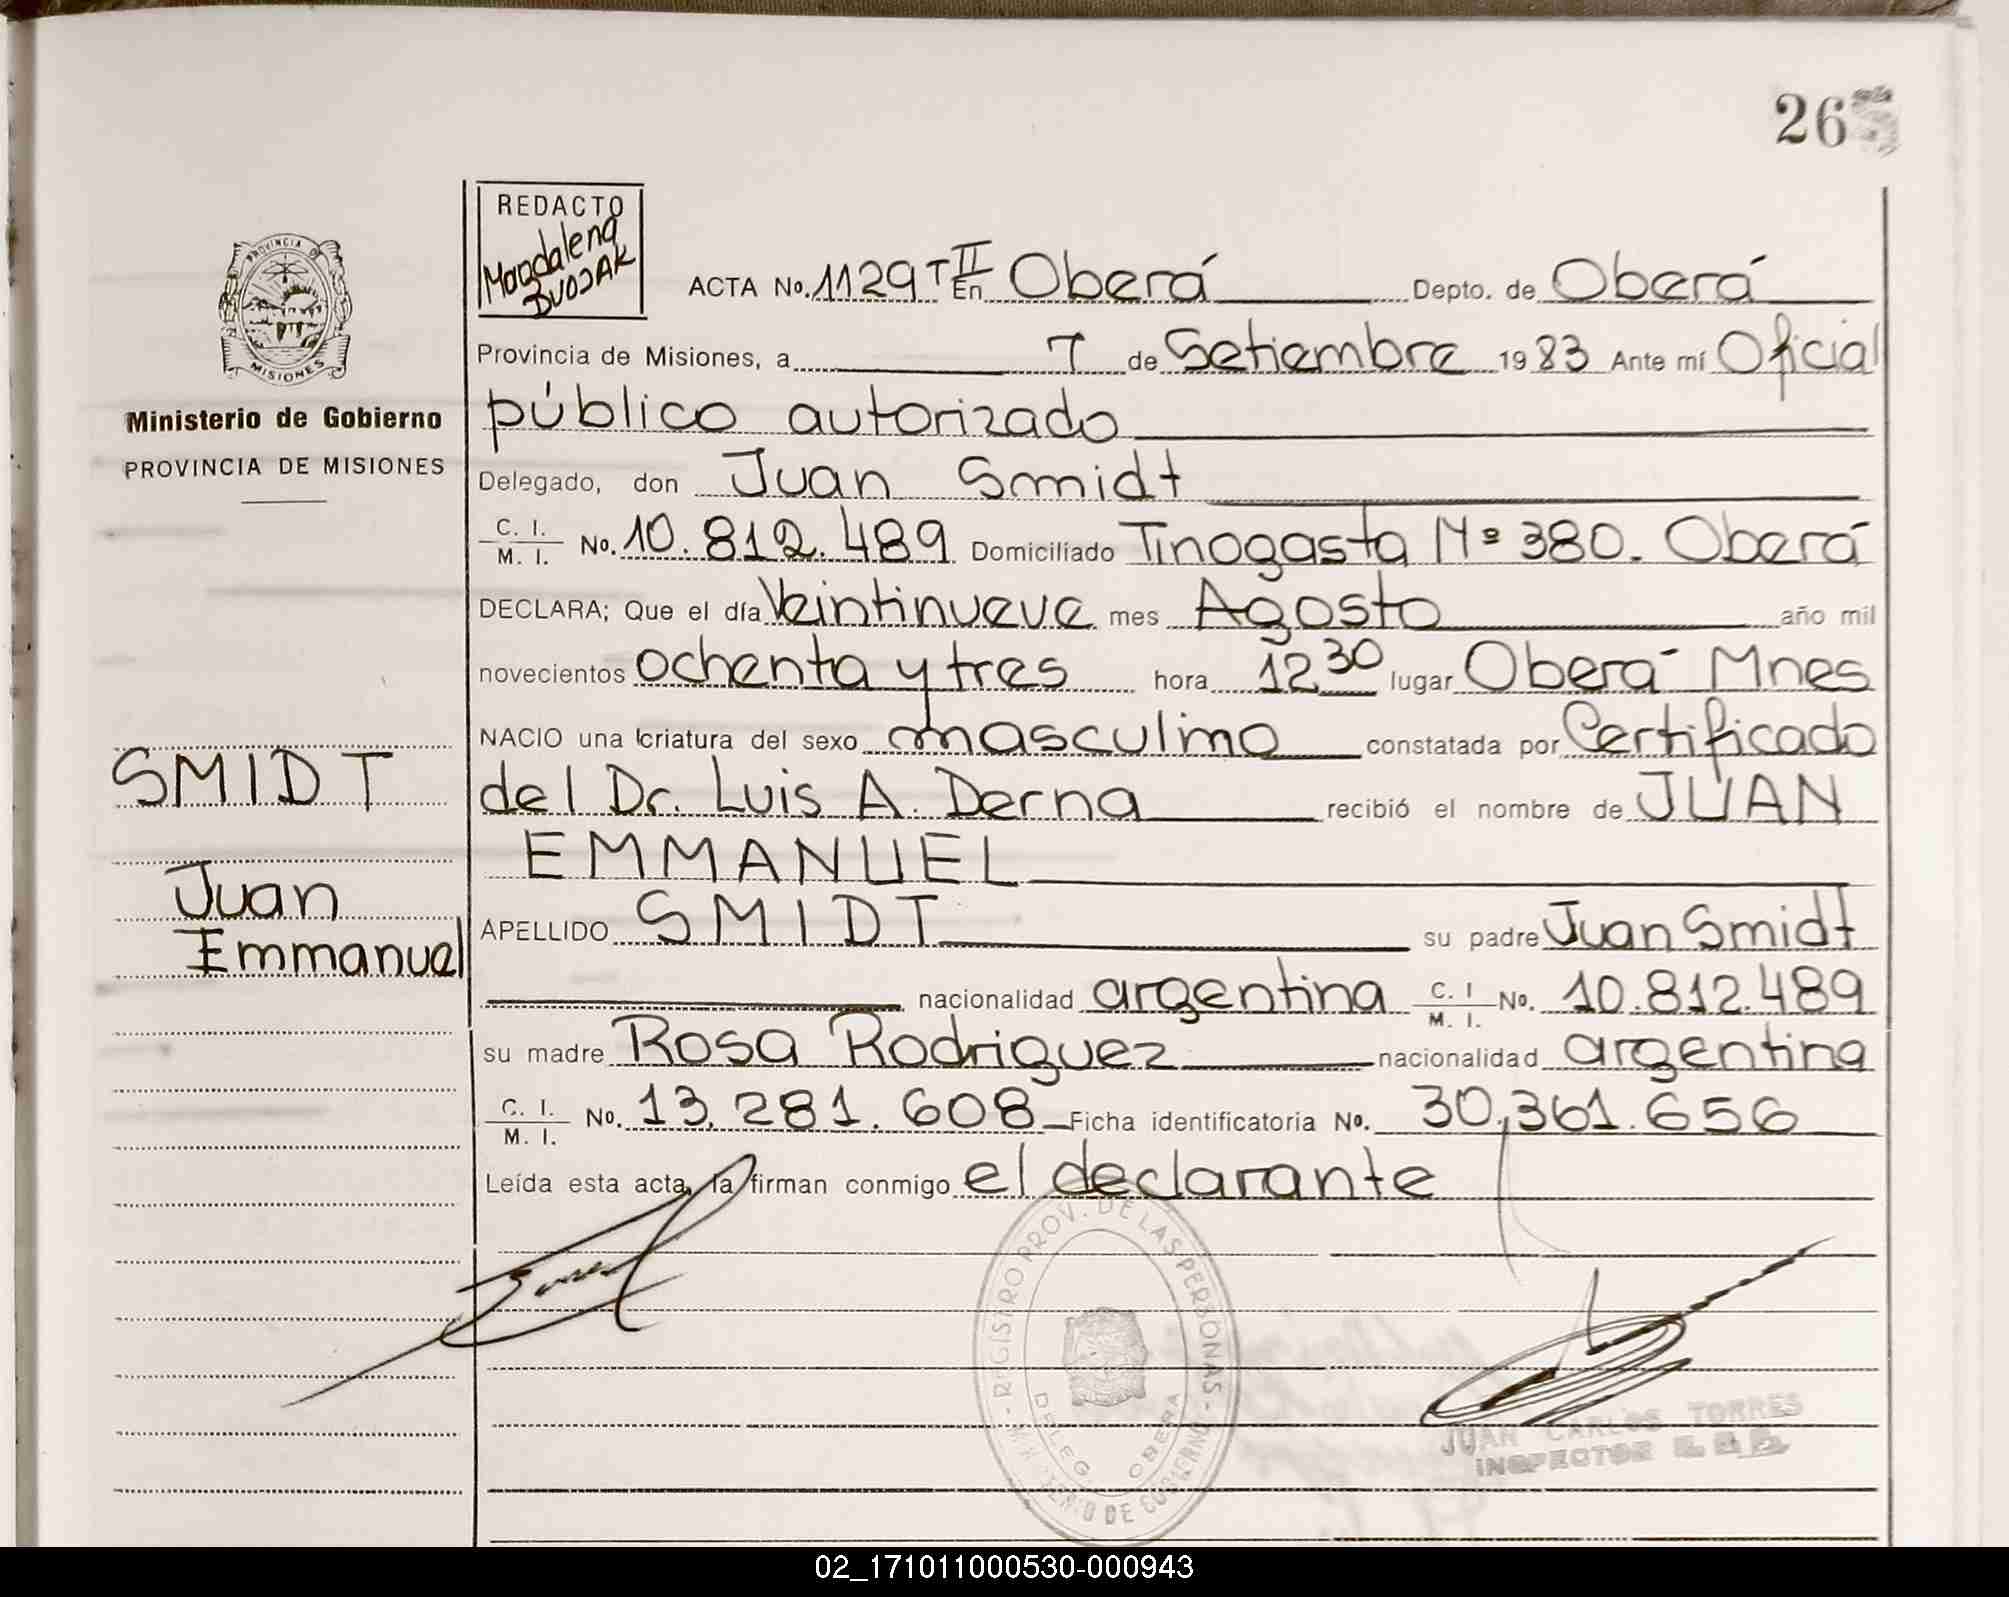 265
REDACTO
Magdalena
DVOJAK
PROVINCIA DE
MISIONES
Ministerio de Gobierno
PROVINCIA DE MISIONES
ACTA No. 1129 T II En Oberá Depto. de Oberá
Provincia de Misiones, a 7 de Setiembre 1983 Ante mí Oficial
público autorizado
Delegado, don Juan Smidt
C. I. M. I. No. 10.812.489 Domiciliado Tinogasta Nº 380. Oberá
DECLARA; Que el día Veintinueve mes Agosto año mil
novecientos ochenta y tres hora 12 30 lugar Oberá Mnes
NACIO una criatura del sexo masculino constatada por Certificado
del Dr. Luis A. Derna recibió el nombre de JUAN
EMMANUEL
APELLIDO SMIDT su padre Juan Smidt
nacionalidad argentina C. I M. I. No. 10.812.489
su madre Rosa Rodriguez nacionalidad argentina
C. I. M. I. No. 13.281.608 Ficha identificatoria No. 30,361.656
Leída esta acta, la firman conmigo el declarante
SMIDT
Juan
Emmanuel
REGISTRO PROV. DE LAS PERSONAS
MINISTERIO DE GOBIERNO
DELEG. OBERA
JUAN CARLOS TORRES
INSPECTOR
02_171011000530-000943